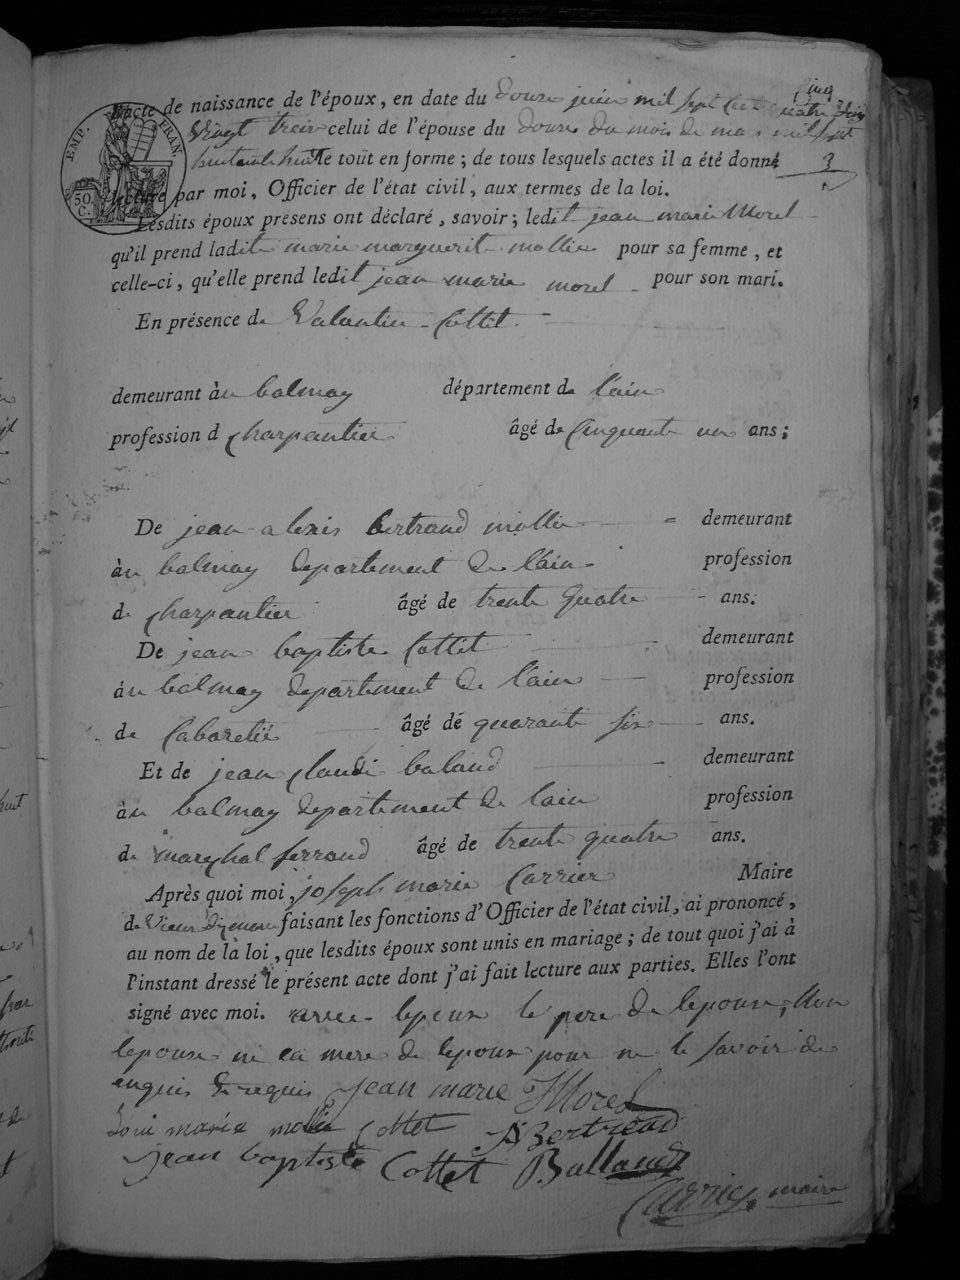 Cinq
Acte de naissance de l'époux, en date du douze juin mil sept cent quatre
EMP. FRAN. vingt treize celui de l'épouse du douze du mois de mars mil sept
huitante huit le tout en forme ; de tous lesquels actes il a été donné
3
50 C. lecture par moi, Officier de l'état civil, aux termes de la loi.
Lesdits époux présens ont déclaré, savoir ; ledit jean marie Morel
qu'il prend ladite marie marguerite mollie pour sa femme, et
celle-ci, qu'elle prend ledit jean marie morel pour son mari.
En présence de Valantin Cottet
demeurant àu balmay département de l'ain
profession d charpantier âgé de Cinquante un ans ;
De jean alexis bertrand mollie demeurant
àu balmay departement de l'ain profession
de charpantier âgé de trente quatre ans.
De jean baptiste Cottet demeurant
àu balmay departement de l'ain profession
de Cabaretié âgé de quarante six ans.
Et de jean claude baland demeurant
àu balmay departement de lain profession
de marechal ferrand âgé de trente quatre ans.
Après quoi moi, joseph marie Carrier Maire
de Vieux faisant les fonctions d'Officier de l'état civil, ai prononcé,
au nom de la loi, que lesdits époux sont unis en mariage ; de tout quoi j'ai à
l'instant dressé le présent acte dont j'ai fait lecture aux parties. Elles l'ont
signé avec moi. avec lepoux le pere de lepouse, Non
lepouse ni sa mere de lepoux pour ne le savoir de
enquis & requis jean marie Morel
marie mollie Cottet Bertrand
jean baptiste Cottet Balland
Carrier maire